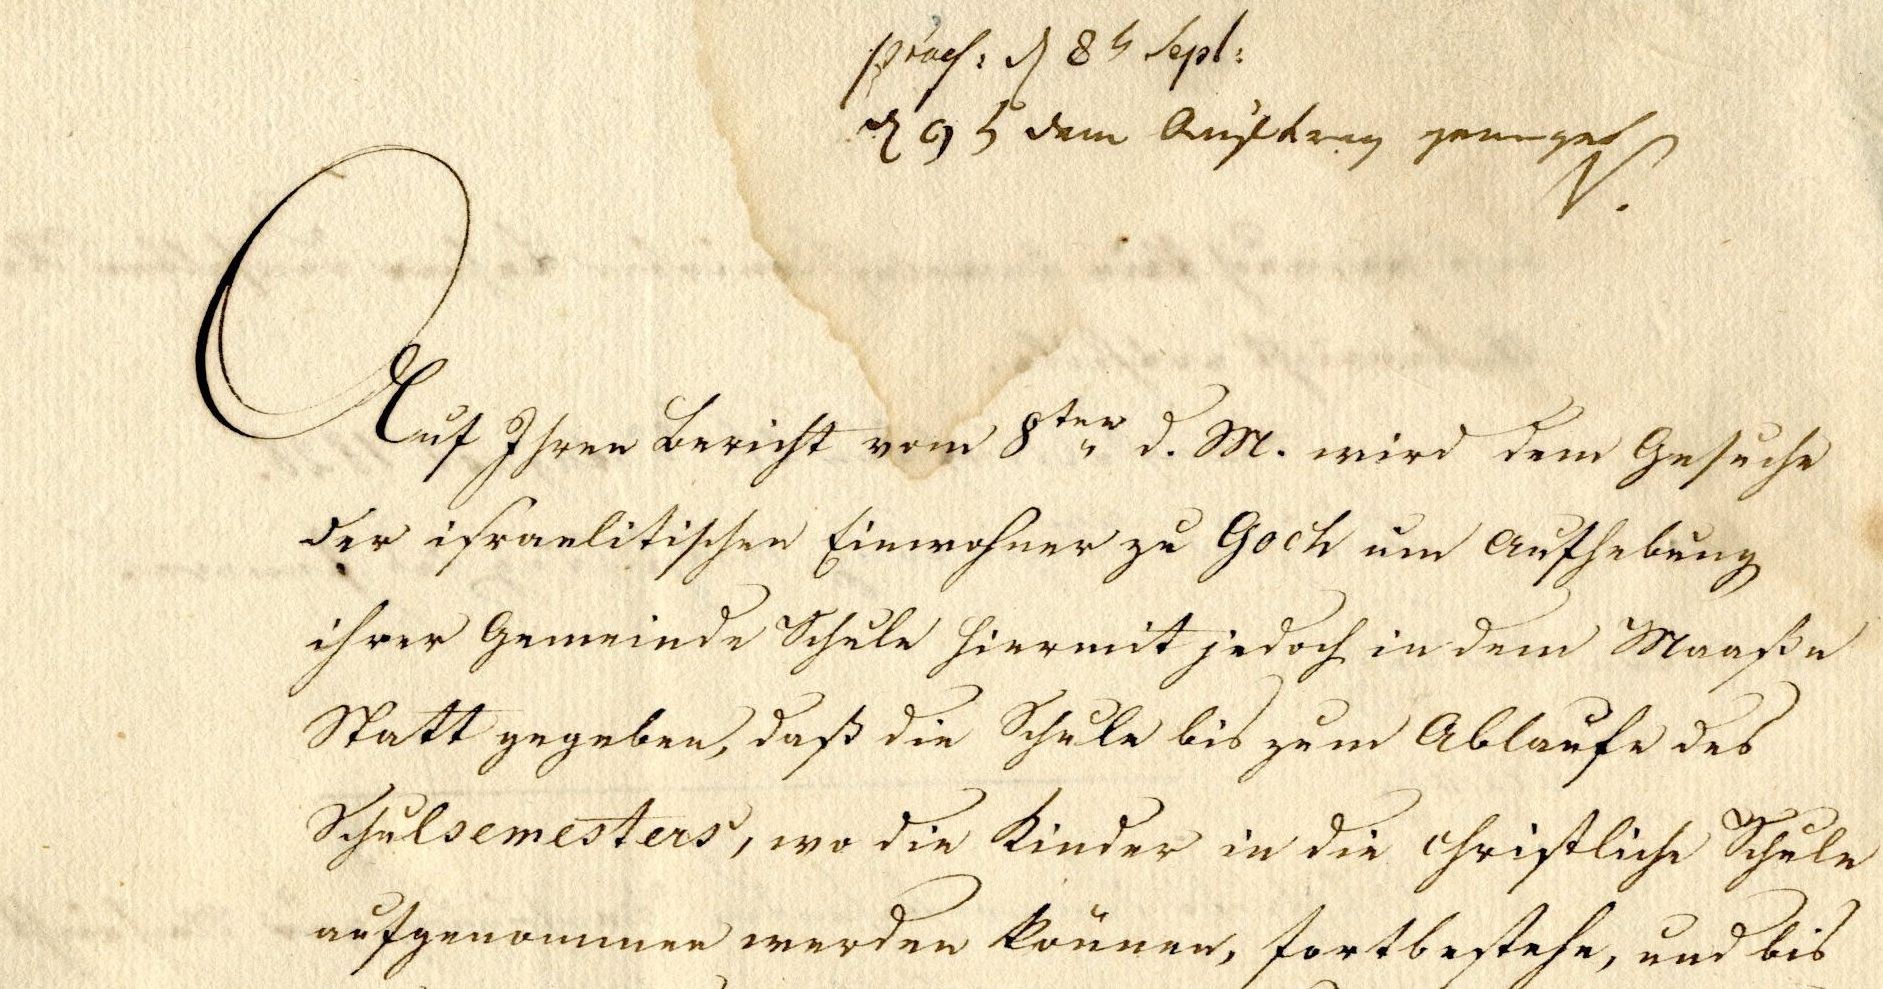 praes: d 8 t Sept:
d 9 t dem Auftrag genügt
N.
Auf Ihren Bericht vom 8ten d. M. wird dem Gesuche
der israelitischen Einwohner zu Goch um Aufhebung
ihrer Gemeinde Schule hiermit jedoch in dem Maaße
Statt gegeben, daß die Schule bis zum Ablaufe des
Schulsemesters, wo die Kinder in die christliche Schule
aufgenommen werden können, fortbestehe, und bis